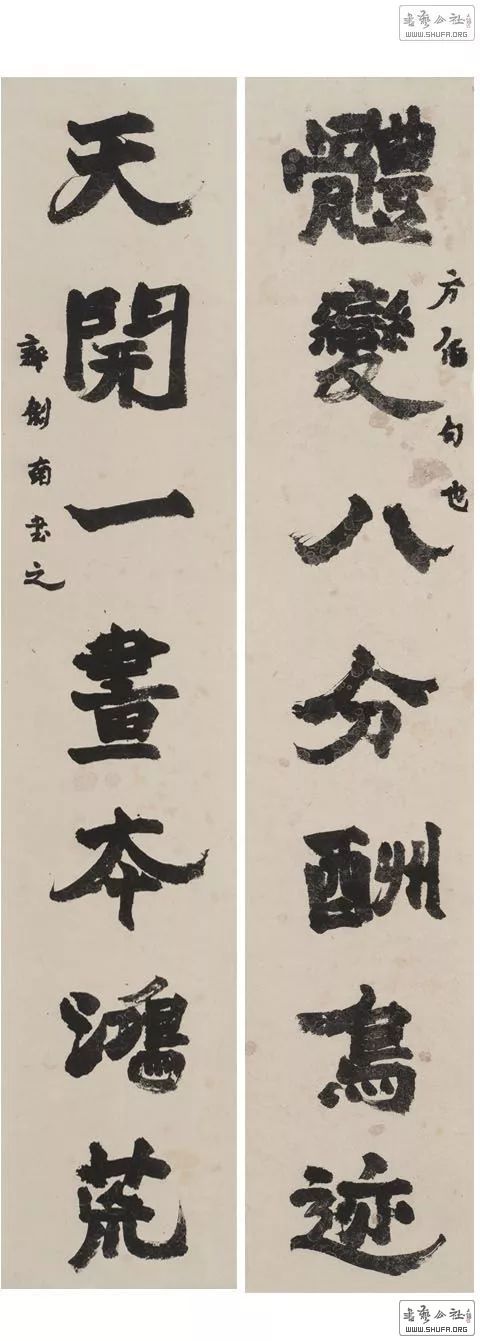 書藝公社
WWW.SHUFA.ORG
體變八分酬鳥迹
方句也
天開一畫本鴻荒
南書之
書藝公社
WWW.SHUFA.ORG